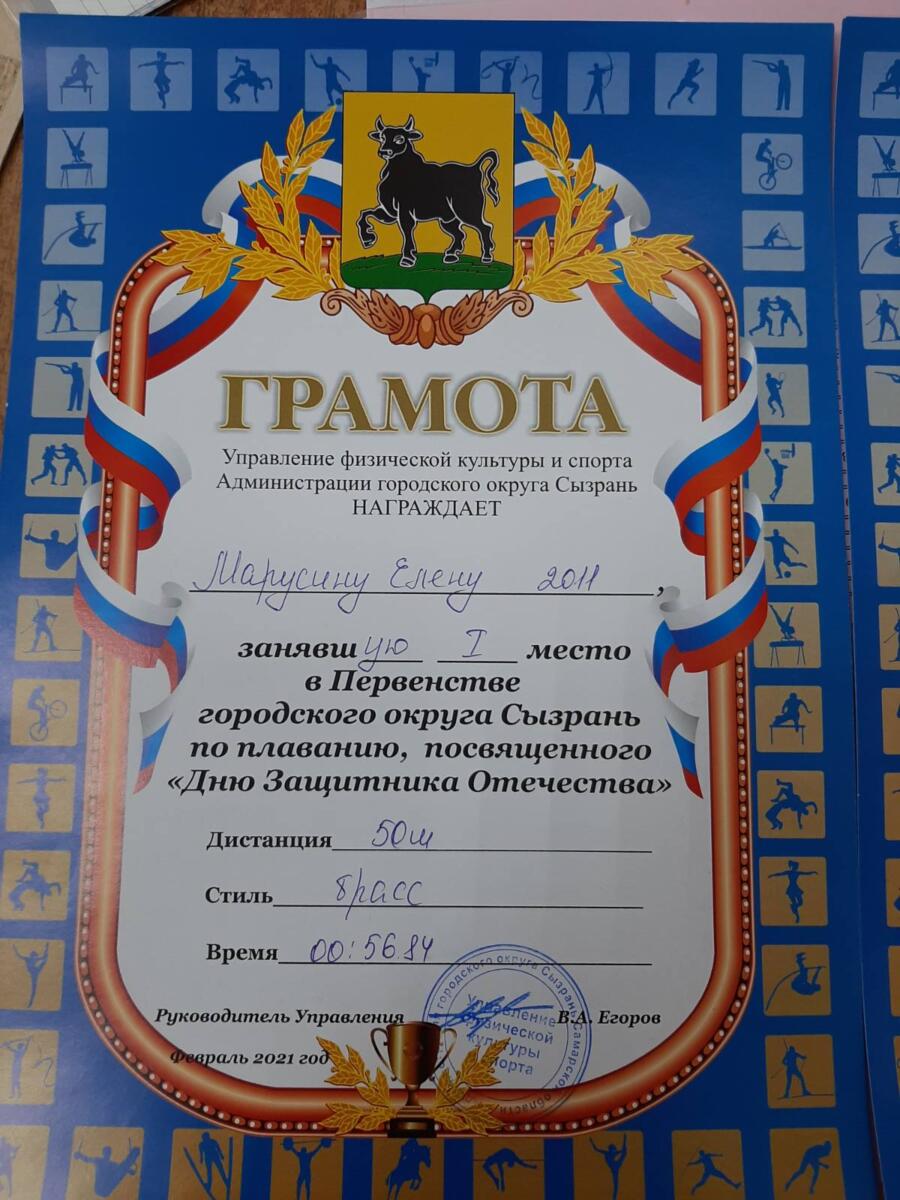 ГРАМОТА
Управление физической культуры и спорта
Администрации городского округа Сызрань
НАГРАЖДАЕТ
Марусину Елену 2011,
занявшую I место
в Первенстве
городского округа Сызрань
по плаванию, посвященного
«Дню Защитника Отечества»
Дистанция 50м
Стиль брасс
Время 00:56.84
Руководитель Управления В.А. Егоров
городского округа Сызрань Самарской области
Управление
физической
культуры
спорта
Февраль 2021 год